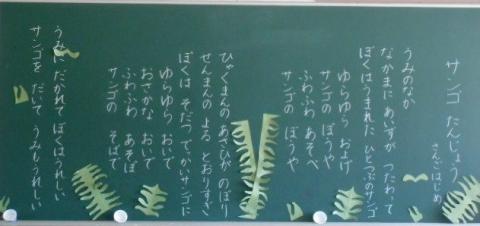 サンゴ たんじょう
さんご はじめ
うみのなか
なかまに あいずが つたわって
ぼくはうまれた ひとつぶのサンゴ
ゆらゆら およげ
サンゴの ぼうや
ふわふわ あそべ
サンゴの ぼうや
ひゃくまんの あさひが のぼり
せんまんの よる とおりすぎ
ぼくは そだつ でっかいサンゴに
ゆらゆら おいで
おさかな おいで
ふわふわ あそぼ
サンゴの そばで
うみに だかれて ぼくはうれしい
サンゴを だいて うみもうれしい